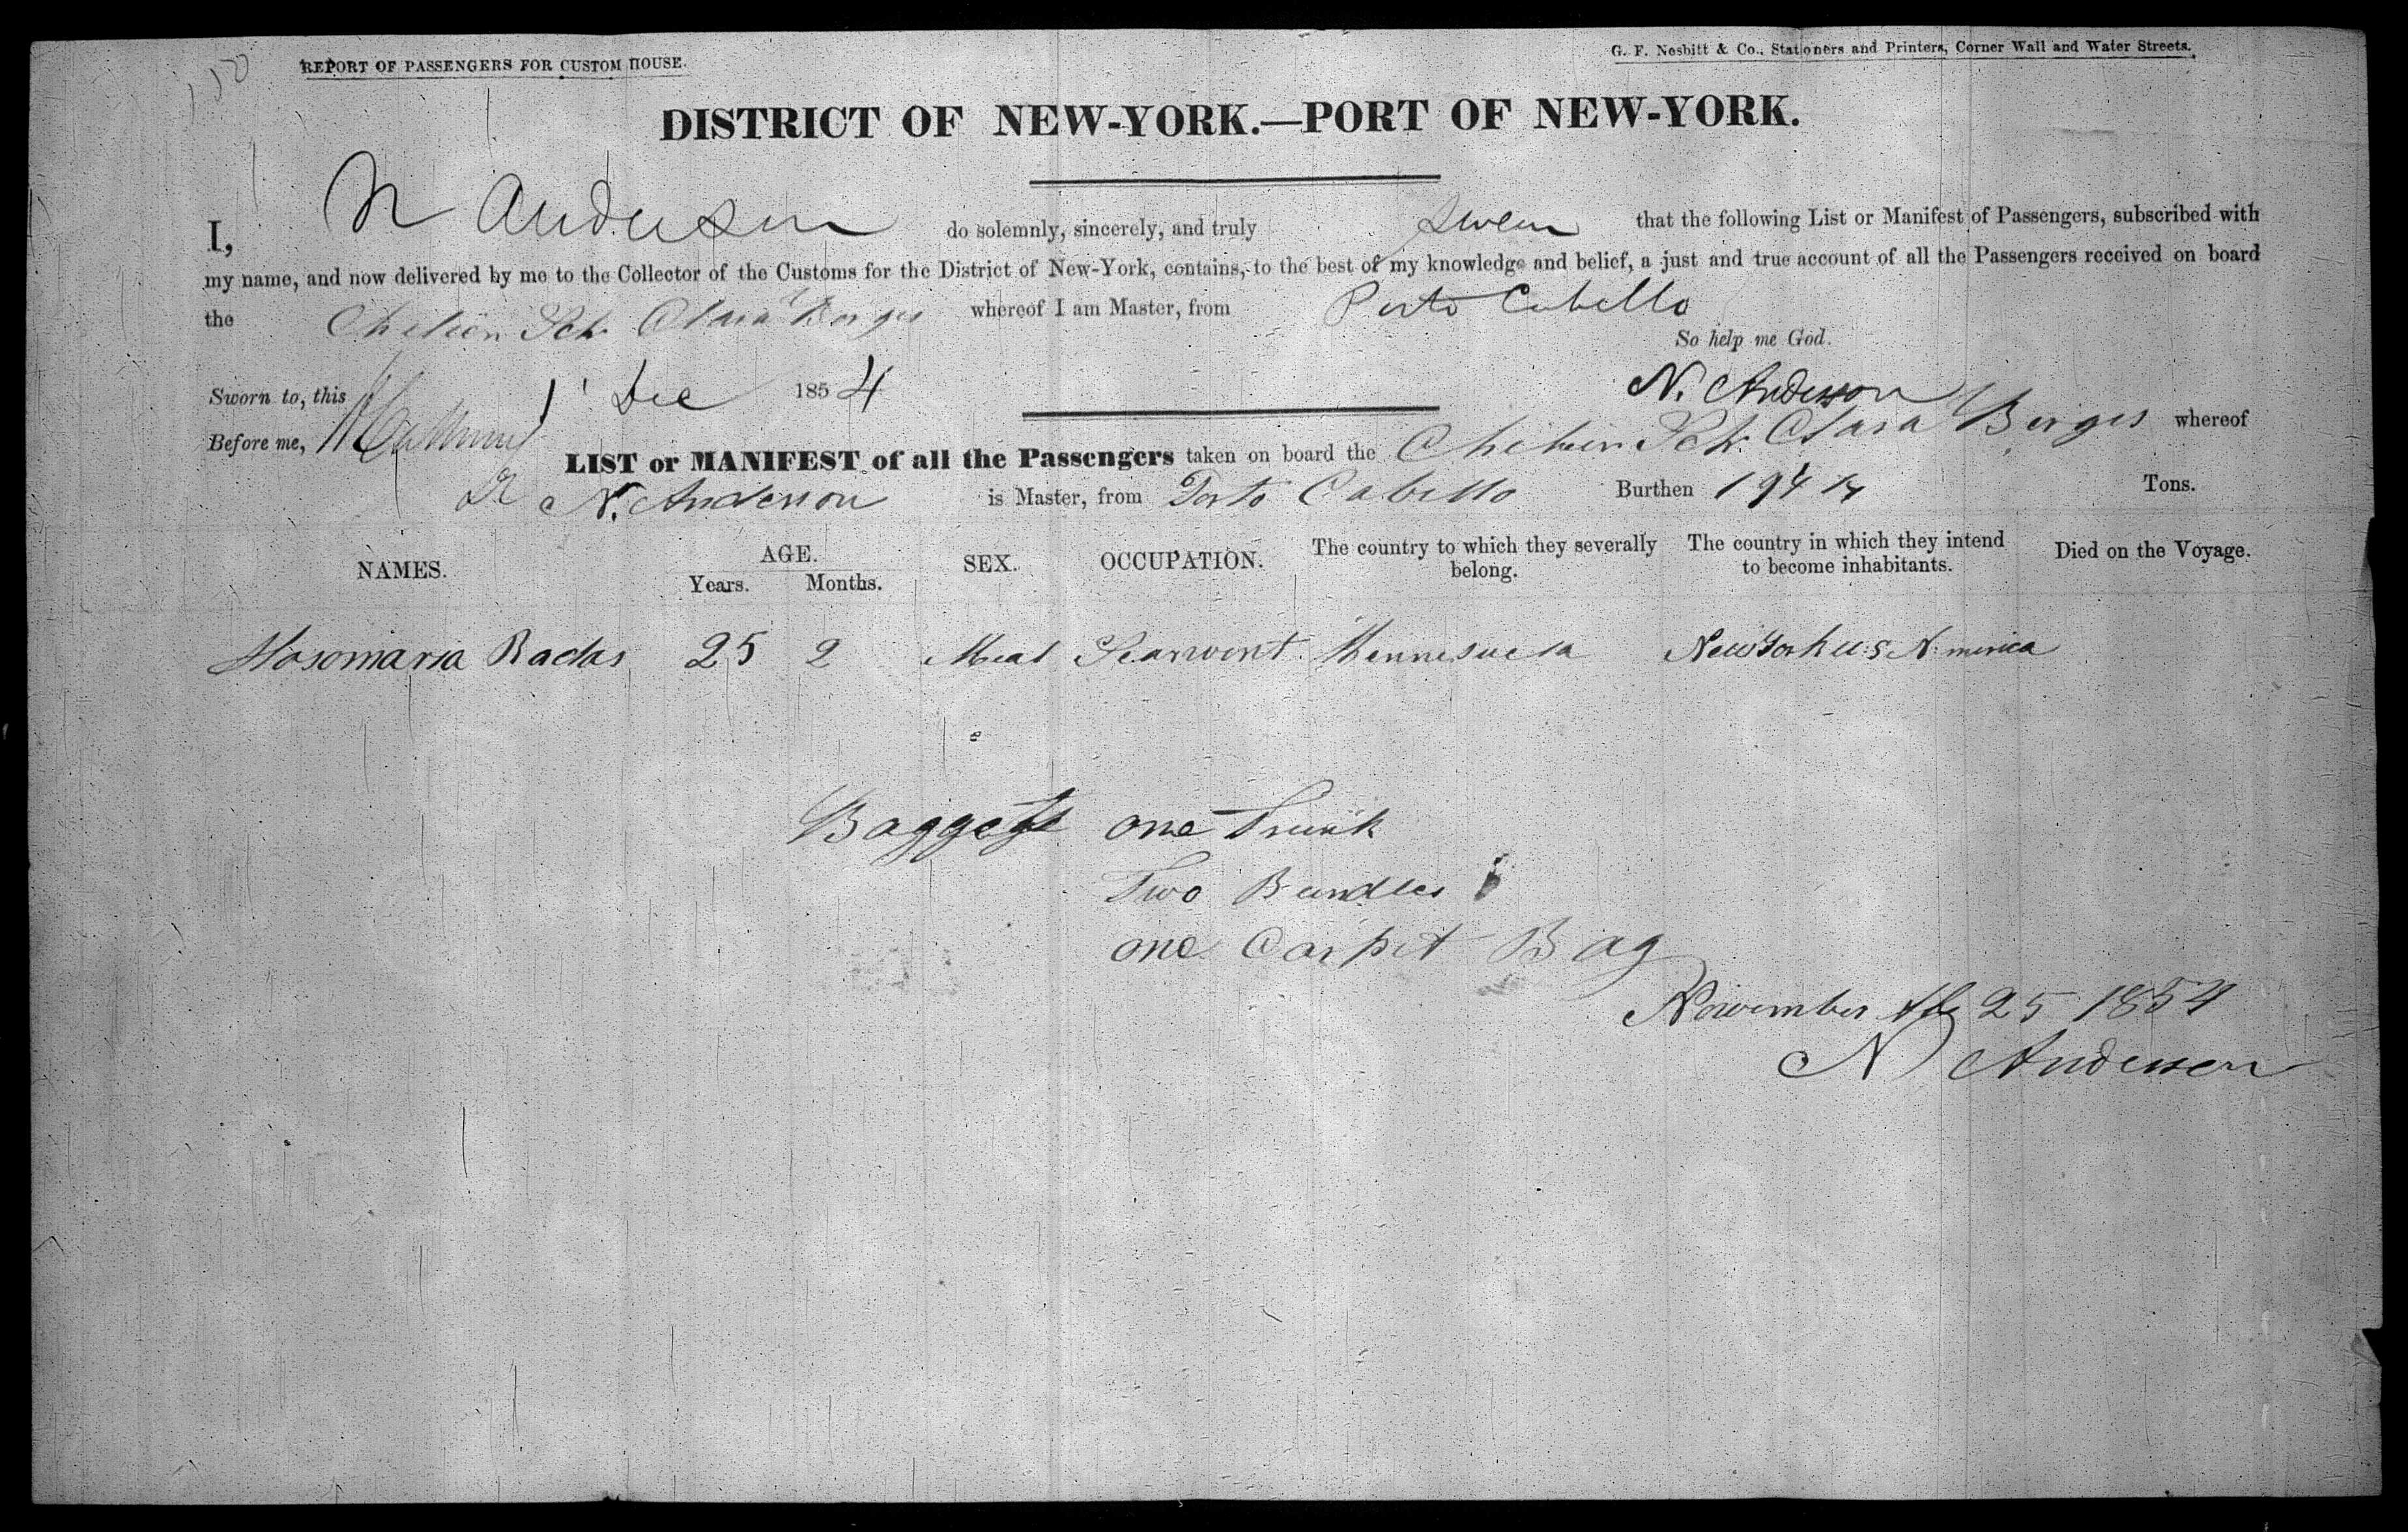 REPORT OF PASSENGERS FOR CUSTOM HOUSE.
G. F. Nesbitt & Co., Stationers and Printers, Corner Wall and Water Streets.
DISTRICT OF NEW-YORK.—PORT OF NEW-YORK.
I, N Anderson do solemnly, sincerely, and truly swear that the following List or Manifest of Passengers, subscribed with
my name, and now delivered by me to the Collector of the Customs for the District of New-York, contains, to the best of my knowledge and belief, a just and true account of all the Passengers received on board
the Chilien Sch. Clara Berges whereof I am Master, from Porto Cabello
So help me God.
Sworn to, this 1 Dec 1854 N. Anderson
Before me,
LIST or MANIFEST of all the Passengers taken on board the Chilien Sch. Clara Berges whereof
N. Anderson is Master, from Porto Cabello Burthen 194 Tons.
NAMES. AGE. Years. Months. SEX. OCCUPATION. The country to which they severally belong. The country in which they intend to become inhabitants. Died on the Voyage.
Hosomaria Badas 25 2 Meal Searwent Wennesuela New York U:S N:merica
Baggege one Trunk
Two Bundles
one Carpet Bag
November the 25 1854
N Anderson